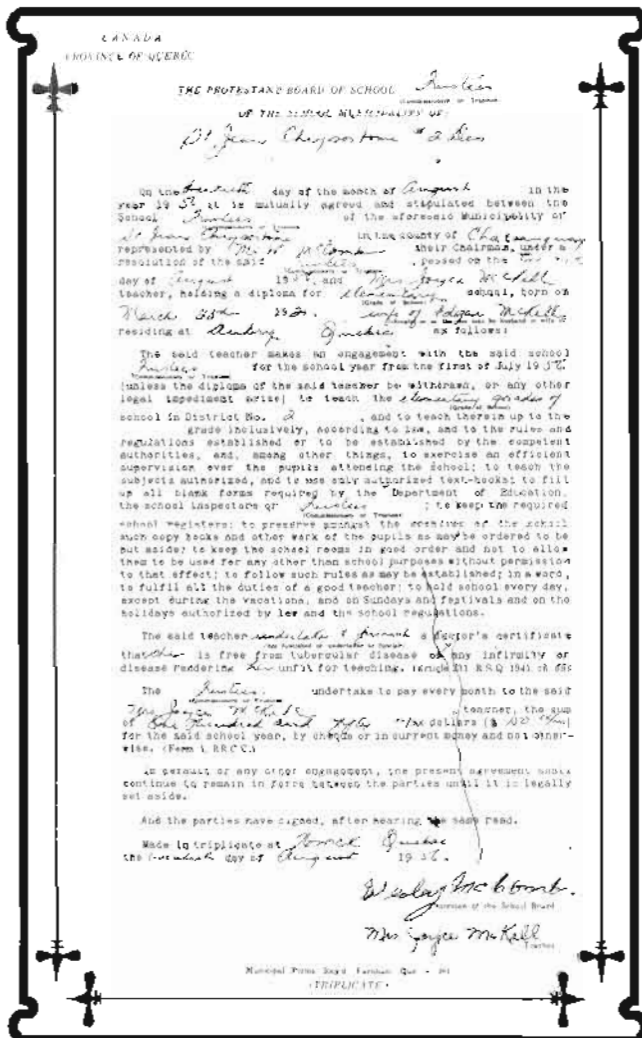 CANADA
PROVINCE OF QUEBEC
THE PROTESTANT BOARD OF SCHOOL Trustees
(Commissioners or Trustees)
OF THE SCHOOL MUNICIPALITY OF
St Jean Chrysostome # 2 Diss
On the day of the month of August in the
year 195 it is mutually agreed and stipulated between the
School Trustees of the aforesaid Municipality of
St Jean Chrysostome in the county of Chateauguay
represented by Mr W McComb their Chairman, under a
resolution of the said Trustees, passed on the
day of August 195 , and Mrs Joyce McKell
teacher, holding a diploma for elementary school, born on
March 23rd 192 . wife of McKell
residing at Aubrey Quebec as follows:
The said teacher makes an engagement with the said school
Trustees for the school year from the first of July 195
(unless the diploma of the said teacher be withdrawn, or any other
legal impediment arise) to teach the elementary grades of
school in District No. 2 , and to teach therein up to the
grade inclusively, according to law, and to the rules and
regulations established or to be established by the competent
authorities, and, among other things, to exercise an efficient
supervision over the pupils attending the school; to teach the
subjects authorized, and to use only authorized text-books; to fill
up all blank forms required by the Department of Education,
the school inspectors or Trustees ; to keep the required
(Commissioners or Trustees)
school registers; to preserve amongst the archives of the school
such copy books and other work of the pupils as may be ordered to be
put aside; to keep the school rooms in good order and not to allow
them to be used for any other than school purposes without permission
to that effect; to follow such rules as may be established; in a word,
to fulfil all the duties of a good teacher; to hold school every day,
except during the vacations, and on Sundays and festivals and on the
holidays authorized by law and the school regulations.
The said teacher undertakes to furnish a doctor's certificate
that she is free from tubercular disease or any infirmity or
disease rendering her unfit for teaching. (Article 231 R.S.Q. 1941 ch
The Trustees undertake to pay every month to the said
Mrs Joyce McKell teacher, the sum
of One Hundred and Fifty dollars ($
for the said school year, by cheque or in current money and not other-
wise. (Form 1, R.R.C.C.)
In default of any other engagement, the present agreement shall
continue to remain in force between the parties until it is legally
set aside.
And the parties have signed, after hearing the same read.
Made in triplicate at Howick Quebec
the day of August 195 .
Wesley McComb.
Chairman of the School Board
Mrs Joyce McKell
Teacher
Municipal Forms Regd Farnham Que -
(TRIPLICATE)